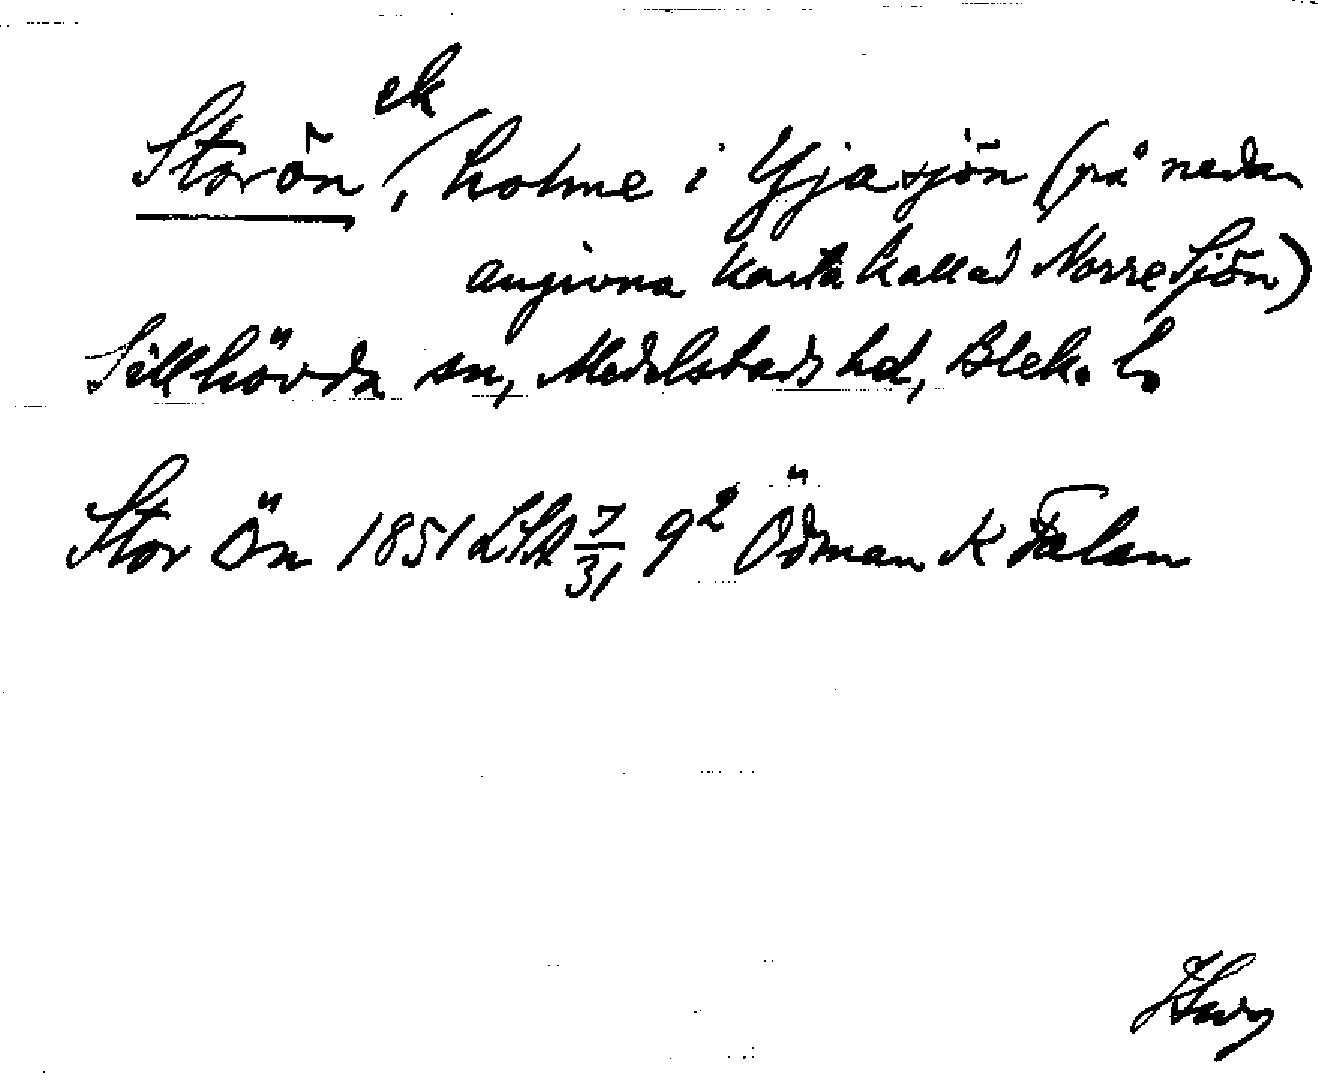 Storön, ek holme i Yjasjön (på nedan
angivna karta kallad Norre Sjön)
Sillhövda sn, Medelstads hd, Blek. l.
Stor Ön 1851 LSA 7/31 9² Ödman K Falan